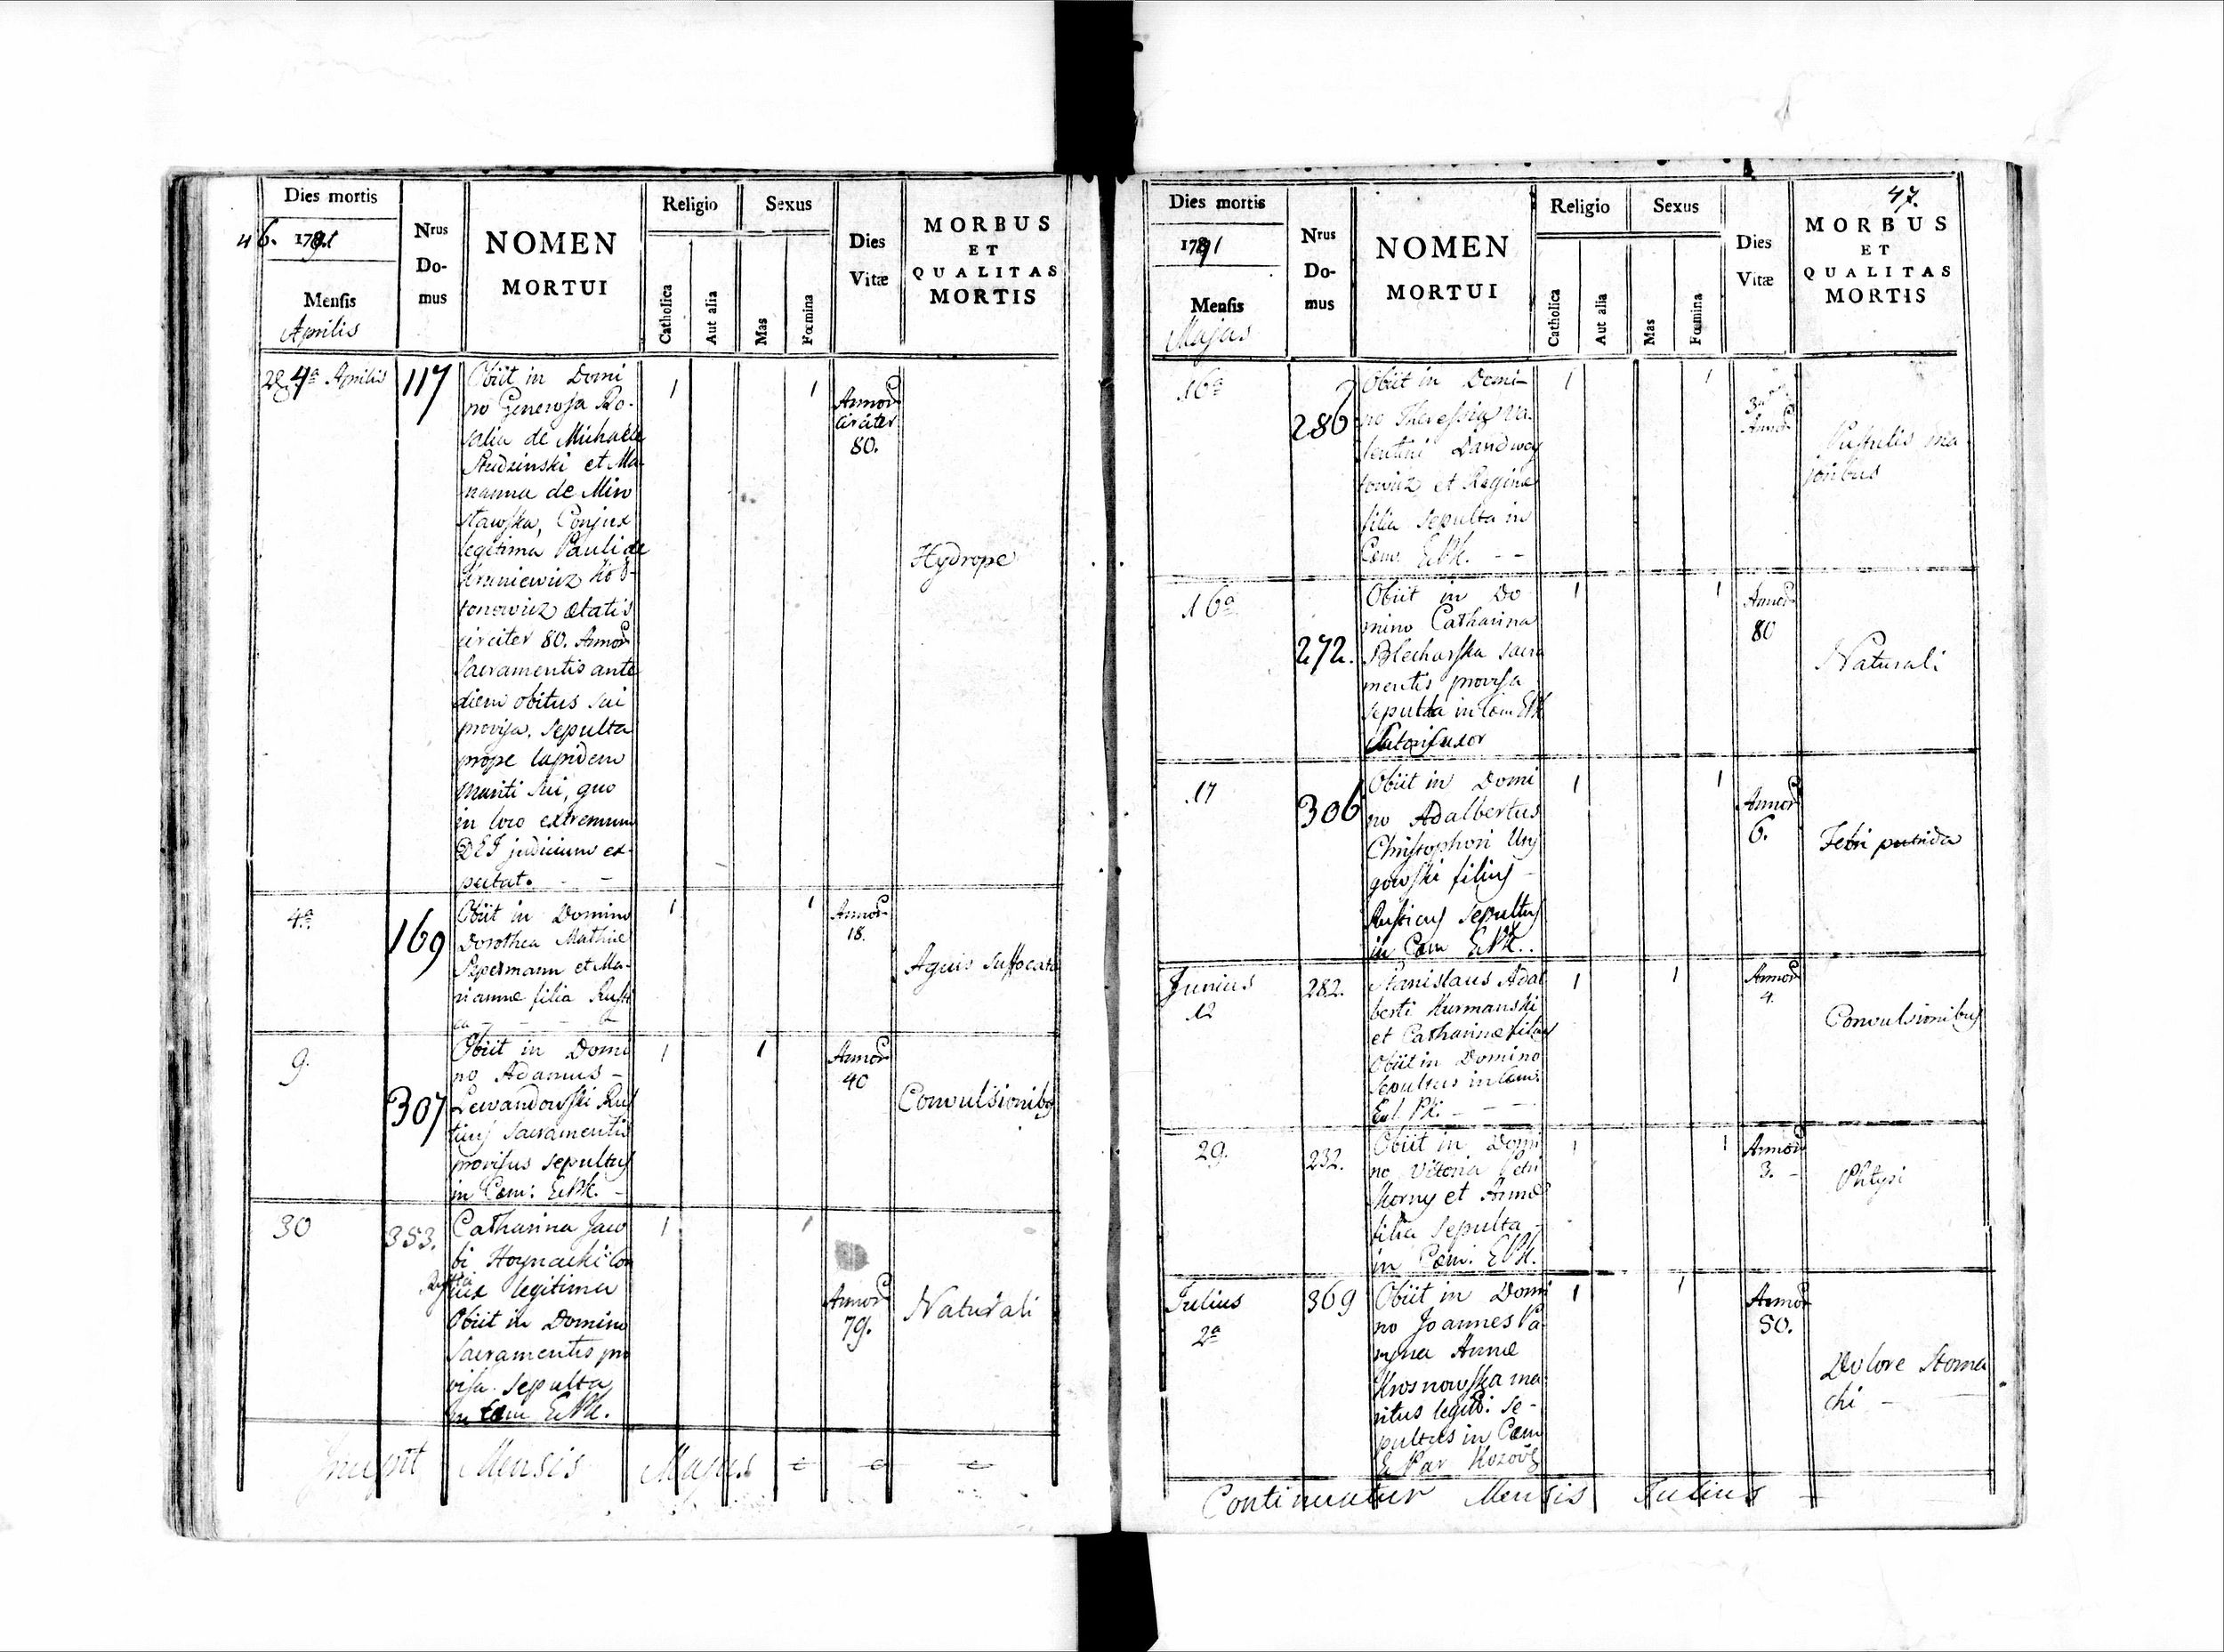 46.
Dies mortis
1791
Mensis
Aprilis
Nrus
Do-
mus
NOMEN
MORTUI
Religio
Catholica
Aut alia
Sexus
Mas
Fœmina
Dies
Vitæ
MORBUS
ET
QUALITAS
MORTIS
4a Aprilis
117
Obiit in Domi
no Generosa Ro-
salia de Michaele
Studzinski et Ma-
rianna de
Conjux
legitima Pauli de
ætatis
circiter 80. Annor
Sacramentis ante
diem obitus sui
provisa. Sepulta
prope lapidem
mariti sui, quo
in loco extremum
DEI judicium ex-
pectat. - -
1
1
Annor
circiter
80.
Hydrope
4a
169
Obiit in Domino
Dorothea Mathiæ
et Ma-
riannæ filia Rusti
ca - - - -
1
1
Annor
18.
Aquis Suffocata
9.
307
Obiit in Domi
no Adamus -
Lewandowski Rus
ticus Sacramentis
provisus Sepultus
in Cæm: E. Pk. -
1
1
Annor
40
Convulsionibus
30
353.
Catharina Jaco
bi Hoynacki Con
Rustici
jux legitima
Obiit in Domino
Sacramentis pro
visa. Sepulta
in Cæm E. Pk.
1
1
Annor
79.
Naturali
Incipit Mensis Majus
47.
Dies mortis
1791
Mensis
Majus
Nrus
Do-
mus
NOMEN
MORTUI
Religio
Catholica
Aut alia
Sexus
Mas
Fœmina
Dies
Vitæ
MORBUS
ET
QUALITAS
MORTIS
16a
286
Obiit in Domi-
no Theressia Va-
lentini
et Reginæ
filia Sepulta in
Cæm. E. Pk. - -
1
1
3
Annor
Pustulis ma
joribus
16a
272.
Obiit in Do
mino Catharina
Blecharska sacra
mentis provisa
sepulta in Cæm E Pk
1
1
Annor
80
Naturali
17
306
Obiit in Domi
no Adalbertus
Christophori
filius -
Rusticus Sepultus
in Cæm E. Pk..
1
1
Annor
6.
Febri putrida
Junius
12
282.
Stanislaus Adal
berti Kurmanski
et Catharinæ filius
Obiit in Domino
Sepultus in Cæm:
Ecl. Pk. - - -
1
1
Annor
4.
Convulsionibus
29.
232.
Obiit in Domi
no Victoria Petri
Skorny et Annæ
filia Sepulta -
in Cæm. E Pk.
1
1
Annor
3. -
Phtysi
Julius
2a
369
Obiit in Domi
no Joannes Pa
Annæ
Krosnowska ma-
ritus legit: Se-
pultus in Cæm
E. Par
1
1
Annor
50.
Dolore Stoma
chi -
Continuatur Mensis Julius -